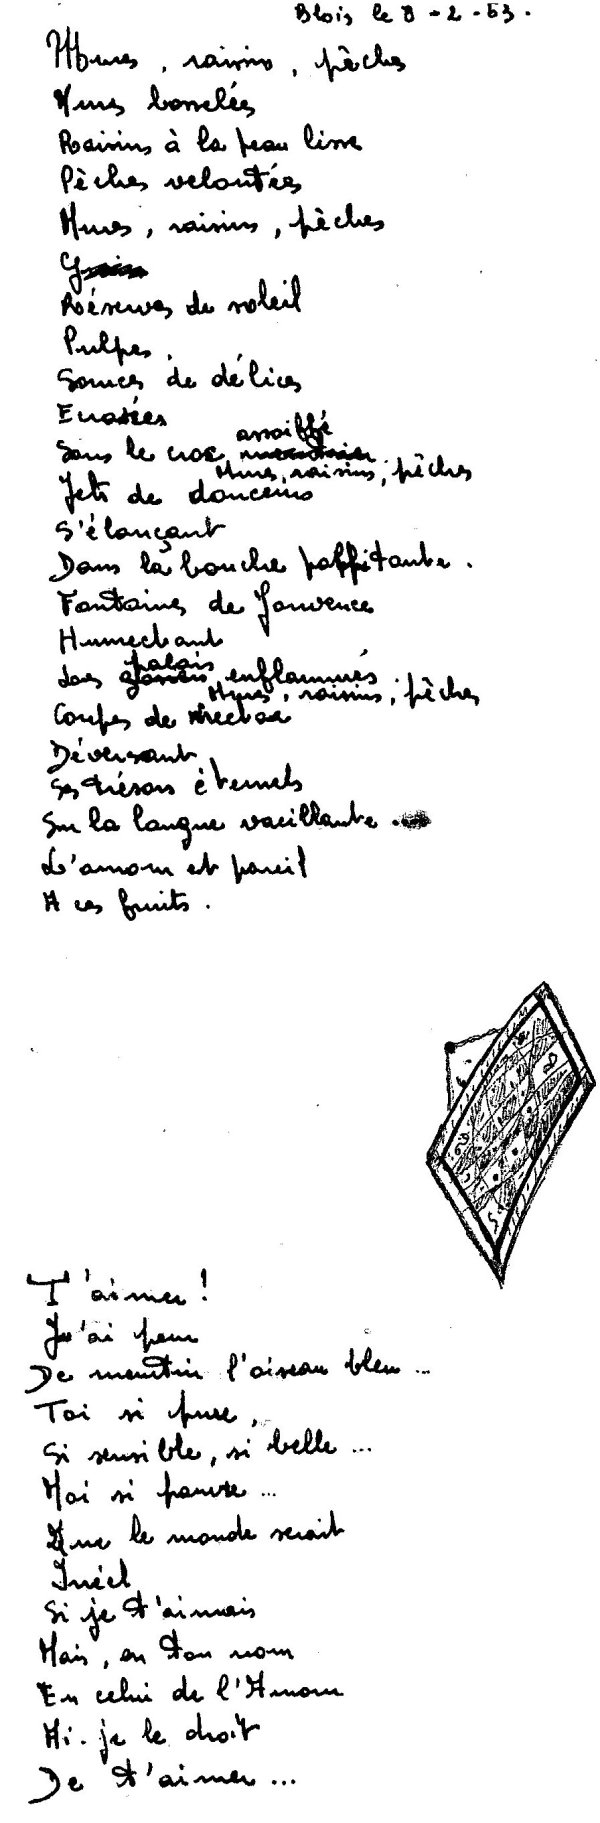 Blois le 8-2-53.
Mures, raisins, pêches
Mures bosselées
Raisins à la peau lisse
Pêches veloutées
Mures, raisins, pêches
Réserves de soleil
Pulpes,
Sources de délices
Ecrasées
Sous le croc assoiffé
Mures, raisins, pêches
Jets de douceurs
S'élançant
Dans la bouche palpitante.
Fontaines de Jouvence
Humectant
Les palais enflammés
Mures, raisins, pêches
Coupes de nectar
Déversant
Ses trésors éternels
Sur la langue vacillante.
L'amour est pareil
A ces fruits.
T'aimer!
J'ai peur
De meurtrir l'oiseau bleu...
Toi si pure,
Si sensible, si belle...
Moi si pauvre...
Que le monde serait
Irréel
Si je t'aimais
Mais, en ton nom
En celui de l'Amour
Ai-je le droit
De t'aimer...